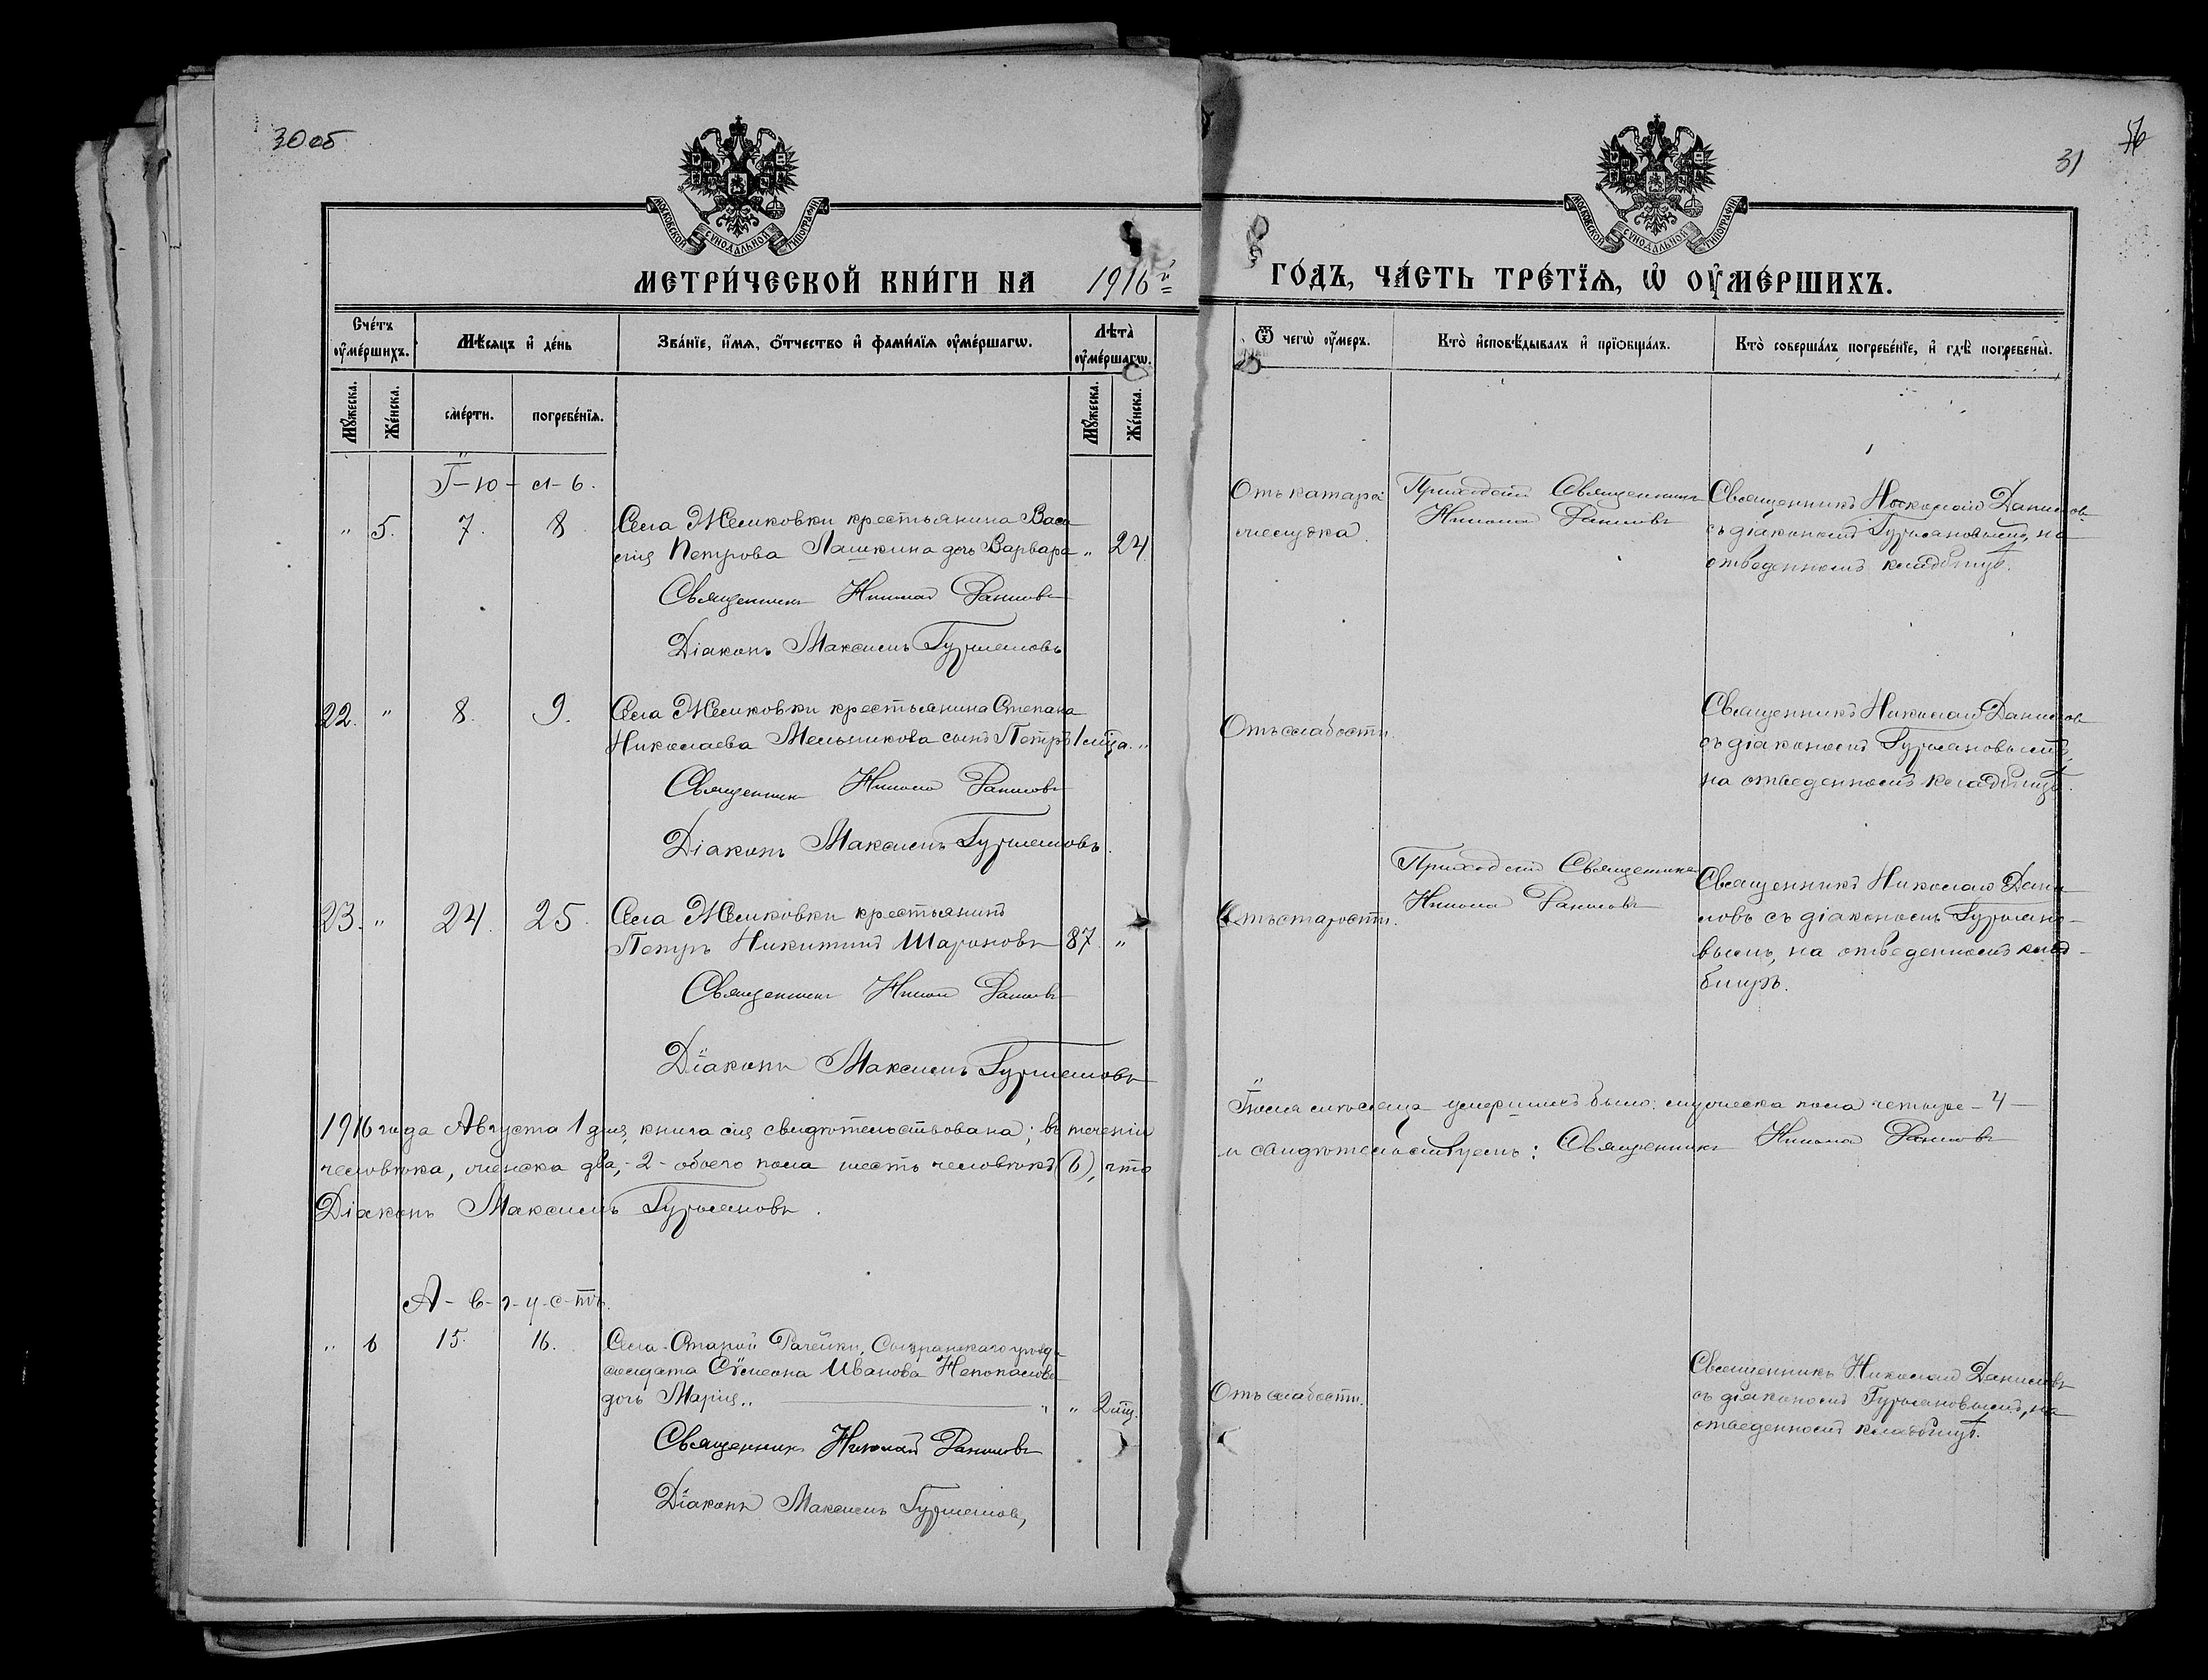 30 об
31
МОСКОВСКОЙ СѴНОДАЛЬНОЙ ТИПОГРАФІИ
МОСКОВСКОЙ СѴНОДАЛЬНОЙ ТИПОГРАФІИ
МЕТРИ́ЧЕСКОЙ КНИ́ГИ НА 1916й ГО́ДЪ, ЧА́СТЬ ТРЕ́ТЇѦ, Ѡ҆ ОУ҆МЕ́РШИХЪ.
Сче́тъ оу҆ме́ршихъ.
Мѣ́сяцъ и҆ де́нь
Зва́нїе, и҆́мя, ѻ҆́тчество и҆ фами́лїя оу҆ме́ршагѡ.
Лѣта̀ оу҆ме́ршагѡ.
Ѿ чегѡ̀ оу҆́меръ.
Кто̀ и҆сповѣ́дывалъ и҆ прїѻбща́лъ.
Кто̀ соверша́лъ погребе́нїе, и҆ гдѣ̀ погребены̀.
Мꙋ́жеска.
Же́нска.
сме́рти.
погребе́нїѧ.
Мꙋ́жеска.
Же́нска.
І-ю-л-ь.
" 5. 7. 8. Села Жемковки крестьянина Васи
лія Петрова Пашкина дочь Варвара " 24
Священникъ Николай Даниловъ
Діаконъ Максимъ Гурьяновъ
Отъ катара
желудка.
Приходскій Священникъ
Николай Даниловъ
Священникъ Николай Данилов
съ діакономъ Гурьяновымъ, на
отведенномъ кладбищѣ.
22. " 8. 9. Села Жемковки крестьянина Степана
Николаева Мельникова сынъ Петръ 1 мѣца. "
Священникъ Николай Даниловъ
Діаконъ Максимъ Гурьяновъ.
Отъ слабости.
Священникъ Николай Данилов
съ діакономъ Гурьяновымъ,
на отведенномъ кладбищѣ.
23. " 24. 25. Села Жемковки крестьянинъ
Петръ Никитинъ Шароновъ 87. "
Священникъ Николай Даниловъ
Діаконъ Максимъ Гурьяновъ
Отъ старости.
Приходскій Священникъ
Николай Даниловъ
Священникъ Николай Дани
ловъ съ діакономъ Гурьяно-
вымъ, на отведенномъ клад-
бищѣ.
1916 года Августа 1 дня, книга сія свидѣтельствована; въ теченіи Іюля мѣсяца умершихъ было: мужеска пола четыре - 4 -
человѣка, женска два, - 2 - обоего пола шесть человѣкъ (6), что и свидѣтельствуемъ: Священникъ Николай Даниловъ
Діаконъ Максимъ Гурьяновъ.
А-в-г-у-с-тъ.
" 6 15. 16. Села Старой Рачейки, Сызранскаго уѣзда
солдата Сѵмеона Иванова
дочь Марія.. " 2 мѣц.
Священникъ Николай Даниловъ
Діаконъ Максимъ Гурьяновъ,
Отъ слабости.
Священникъ Николай Даниловъ
съ діакономъ Гурьяновымъ, на
отведенномъ кладбищѣ.